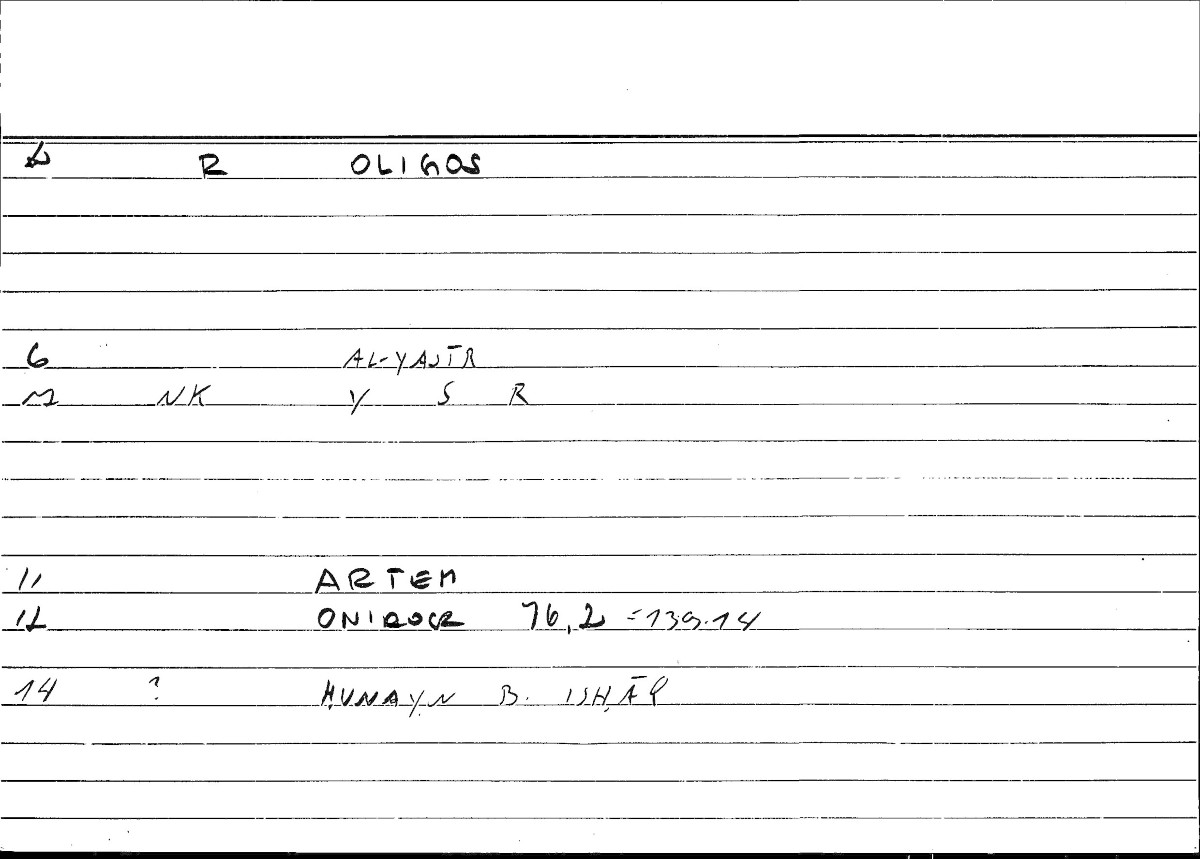 R OLIGOS
6 AL-YASĪR
NK Y S R
11 ARTEM
12 ONIROCR 76,2 =139.14
14 ? ḤUNAYN B. ISḤĀQ